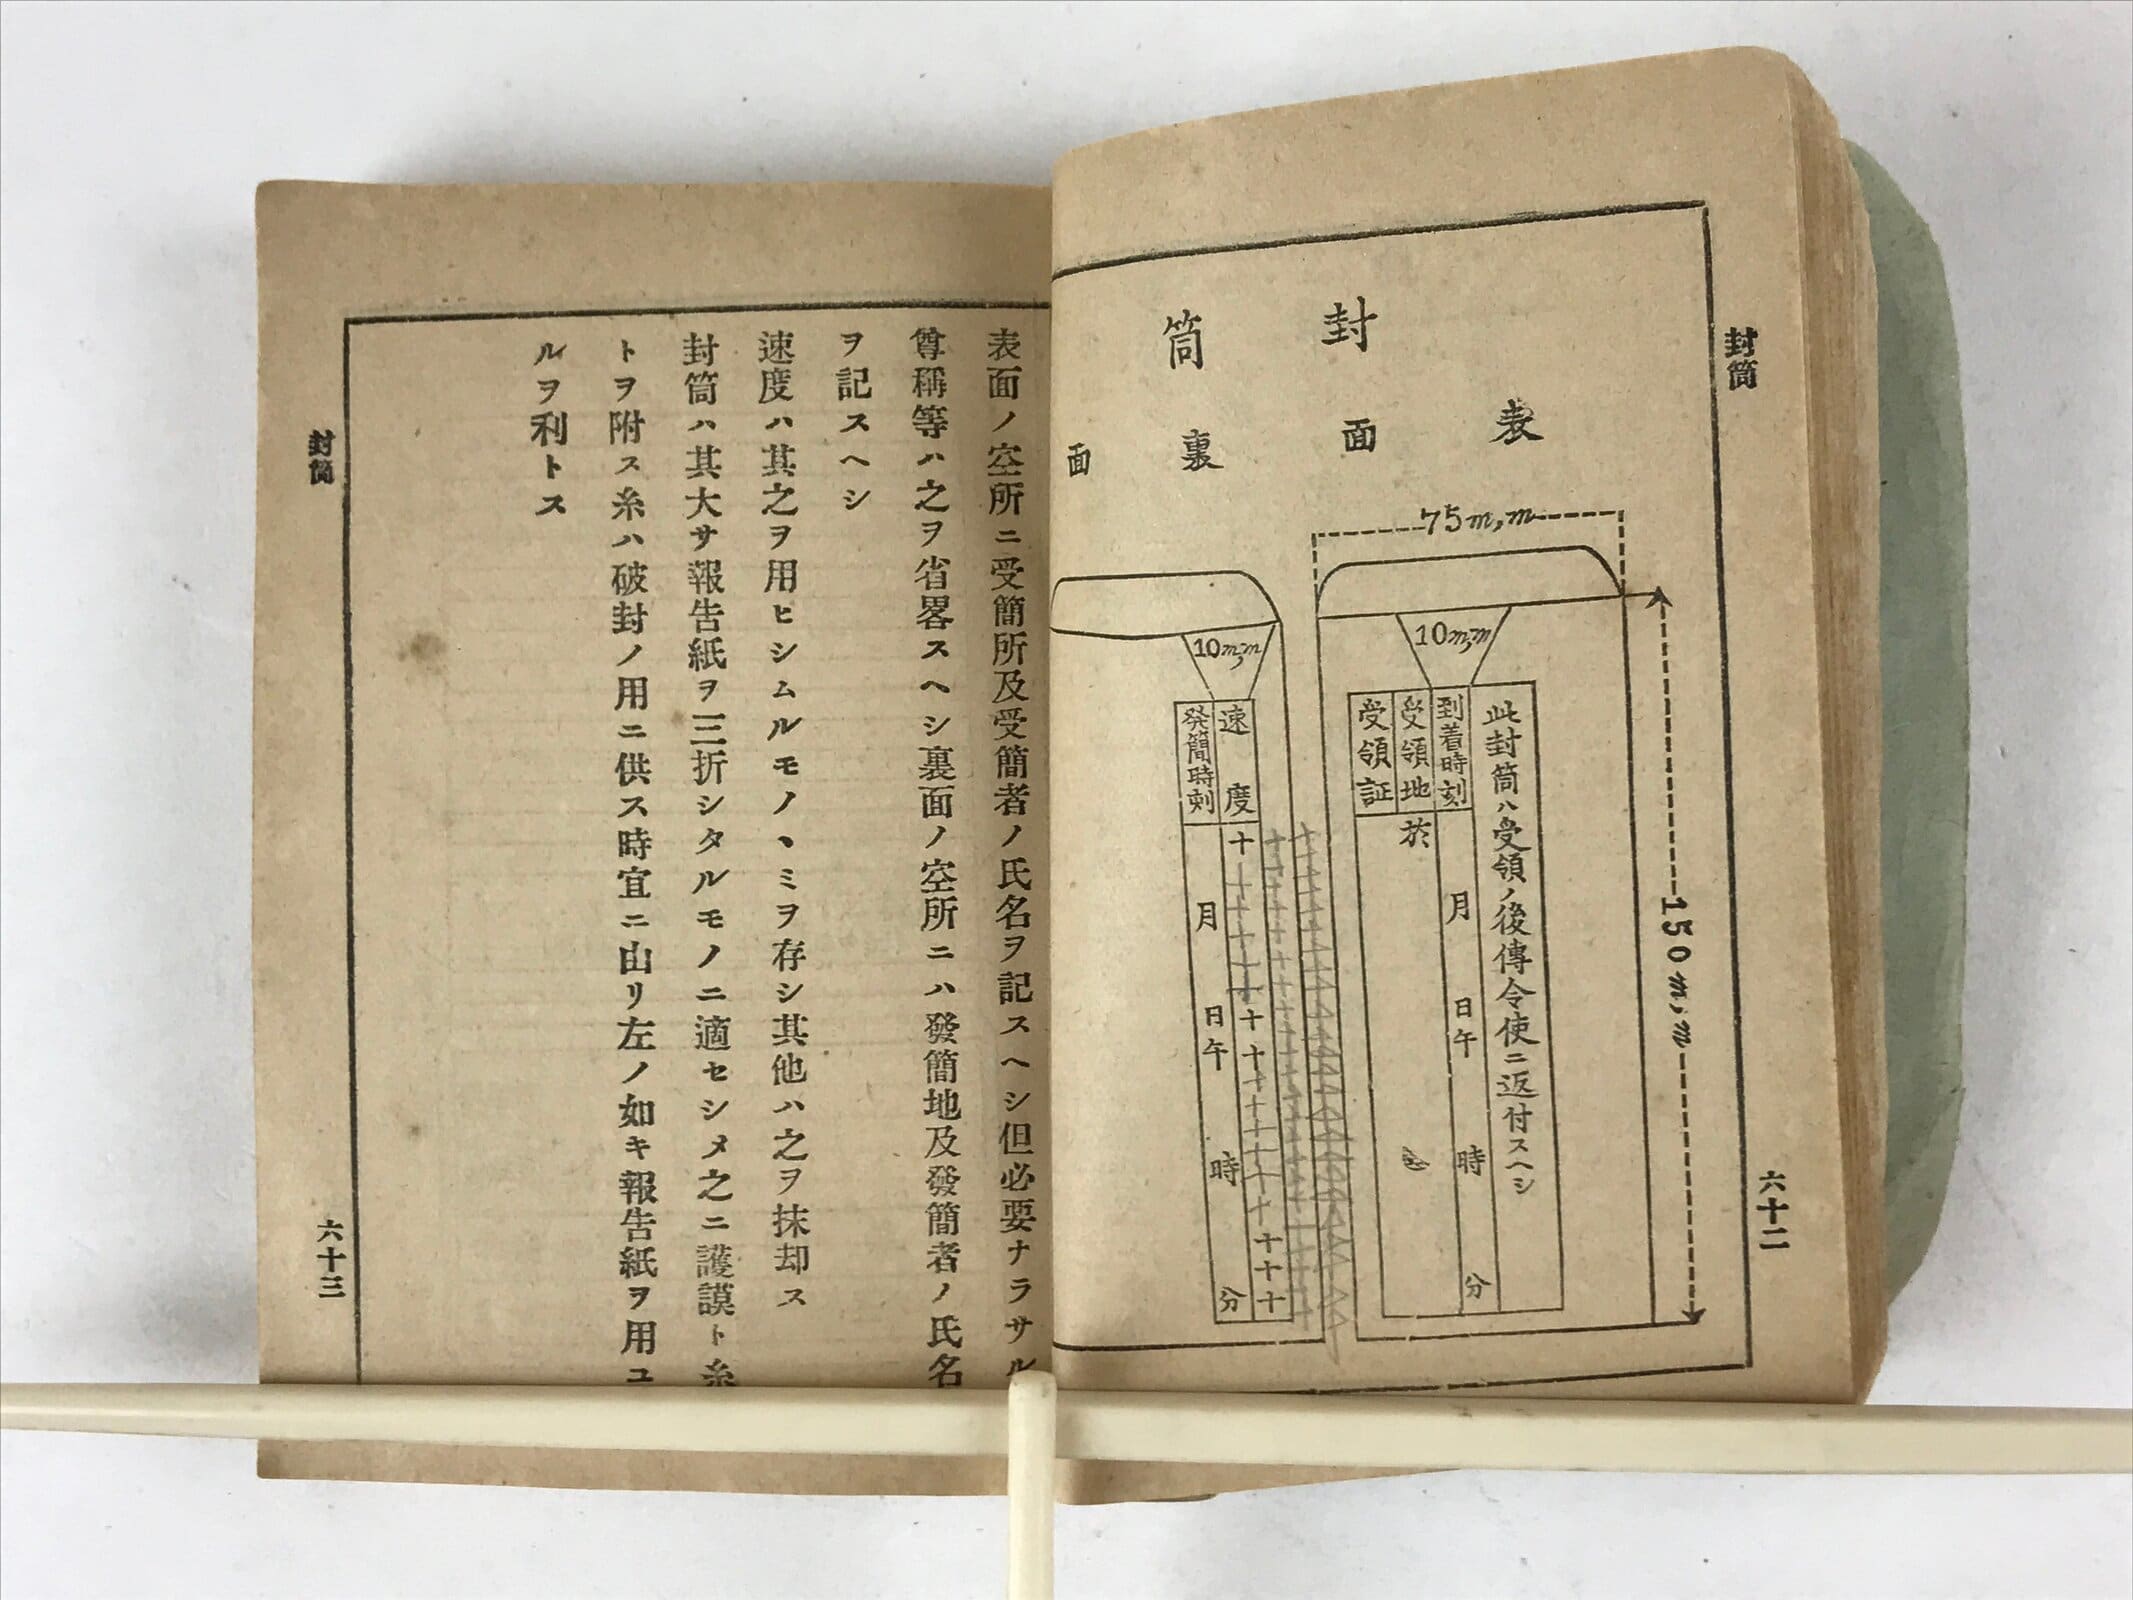 封筒
六十二
封筒
表面
裏面
75m,m
150m,m
10m,m
此封筒ハ受領ノ後傳令使ニ返付スヘシ
到着時刻 月 日午 時 分
受領地 於
受領証
10m,m
速度 十 十 十 十 十 十 十 十 十 十 十 十 十 十
発簡時刻 月 日午 時 分
表面ノ空所ニ受簡所及受簡者ノ氏名ヲ記スヘシ但必要ナラサル
尊稱等ハ之ヲ省畧スヘシ裏面ノ空所ニハ發簡地及發簡者ノ氏名
ヲ記スヘシ
速度ハ其之ヲ用ヒシムルモノヽミヲ存シ其他ハ之ヲ抹却ス
封筒ハ其大サ報告紙ヲ三折シタルモノニ適セシメ之ニ護謨ト糸
トヲ附ス糸ハ破封ノ用ニ供ス時宜ニ由リ左ノ如キ報告紙ヲ用ユ
ルヲ利トス
封筒
六十三